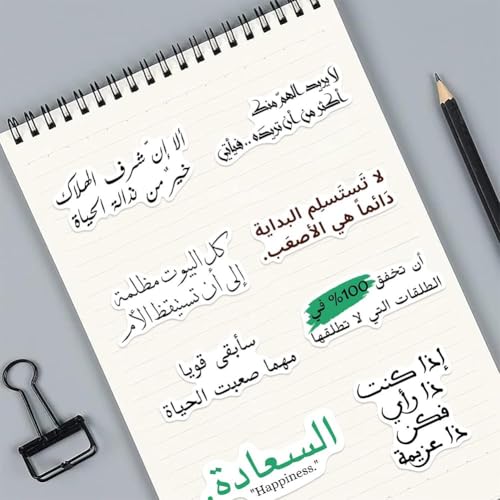 لا يريد الهمّ منك
أكثر من أن تريده .. فيأتي
ألا إنّ شرف الهلاك
خيرٌ من نذالة الحياة
لا تَستَسلم البداية
دَائماً هي الأصعَب.
كل البيوت مظلمة
إلى أن تستيقظ الأم
أن تخفق %100 في
الطلقات التي لا تطلقها
سأبقى قويا
مهما صعبت الحياة
إذا كنت
ذا رأي
فكن
ذا عزيمة
السعادة.
"Happiness."